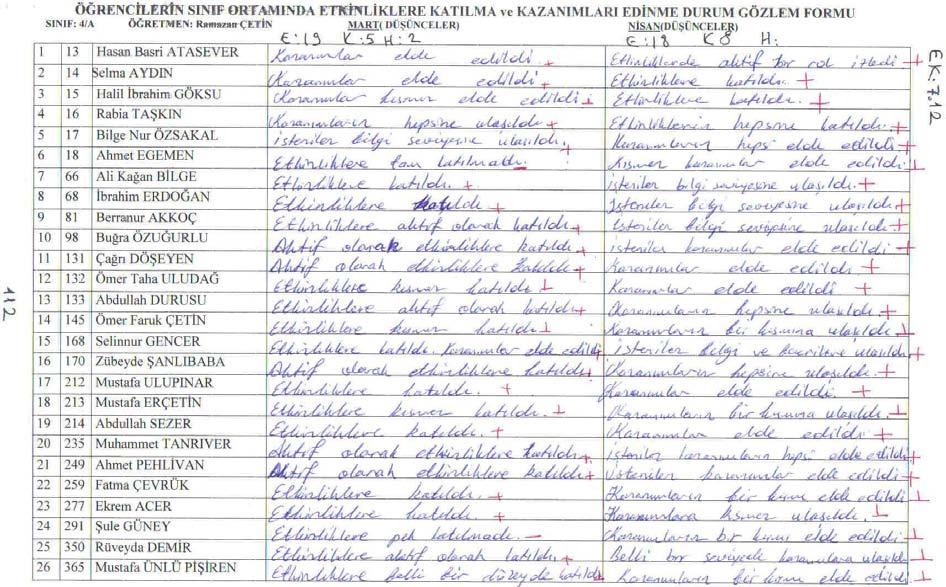 ÖĞRENCİLERİN SINIF ORTAMINDA ETKİNLİKLERE KATILMA ve KAZANIMLARI EDİNME DURUM GÖZLEM FORMU
SINIF: 4/A ÖĞRETMEN: Ramazan ÇETİN MART( DÜŞÜNCELER) NİSAN(DÜŞÜNCELER)
E:19 K:5 H:2 E:18 K8 H:
1 13 Hasan Basri ATASEVER Kazanımlar elde edildi + Etkinliklerde aktif bir rol izledi +
2 14 Selma AYDIN Kazanımlar elde edildi + Etkinliklere katıldı. +
3 15 Halil İbrahim GÖKSU Kazanımlar kısmen elde edildi ± Etkinliklere katıldı. +
4 16 Rabia TAŞKIN Kazanımların hepsine ulaşıldı + Etkinliklerin hepsine katıldı. +
5 17 Bilge Nur ÖZSAKAL İstenilen bilgi seviyesine ulaşıldı. + Kazanımların hepsi elde edildi +
6 18 Ahmet EGEMEN Etkinliklere tam katılmadı. - Kısmen kazanımlar elde edildi ±
7 66 Ali Kağan BİLGE Etkinliklere katıldı. + istenilen bilgi seviyesine ulaşıldı. +
8 68 İbrahim ERDOĞAN Etkinliklere katıldı + İstenilen bilgi seviyesine ulaşıldı +
9 81 Berranur AKKOÇ Etkinliklere aktif olarak katıldı + İstenilen bilgi seviyesine ulaşıldı +
10 98 Buğra ÖZUĞURLU Aktif olarak etkinliklere katıldı + istenilen kazanımlar elde edildi +
11 131 Çağrı DÖŞEYEN Aktif olarak etkinliklere katıldı + Kazanımlar elde edildi +
12 132 Ömer Taha ULUDAĞ Etkinliklere kısmen katıldı ± Kazanımlar elde edildi +
13 133 Abdullah DURUSU Etkinliklere aktif olarak katıldı + Kazanımların hepsine ulaşıldı. +
14 145 Ömer Faruk ÇETİN Etkinliklere kısmen katıldı ± Kazanımların bir kısmına ulaşıldı ±
15 168 Selinnur GENCER Etkinliklere katıldı. Kazanımlar elde edildi + İstenilen bilgi ve becerilere ulaşıldı +
16 170 Zübeyde ŞANLIBABA Aktif olarak etkinliklere katıldı + Kazanımların hepsine ulaşıldı. +
17 212 Mustafa ULUPINAR Etkinliklere katıldı. + Kazanımlar elde edildi. +
18 213 Mustafa ERÇETİN Etkinliklere kısmen katıldı. ± Kazanımların bir kısmına ulaşıldı. ±
19 214 Abdullah SEZER Etkinliklere katıldı. + Kazanımlar elde edildi +
20 235 Muhammet TANRIVER Aktif olarak etkinliklere katıldı + İstenilen kazanımların hepsi elde edildi +
21 249 Ahmet PEHLİVAN Aktif olarak etkinliklere katıldı + İstenilen kazanımlar elde edildi +
22 259 Fatma ÇEVRÜK Etkinliklere katıldı. + Kazanımların bir kısmı elde edildi ±
23 277 Ekrem ACER Etkinliklere katıldı + Kazanımlara kısmen ulaşıldı. ±
24 291 Şule GÜNEY Etkinliklere pek katılmadı. - Kazanımların bir kısmı elde edildi ±
25 350 Rüveyda DEMİR Etkinliklere aktif olarak katıldı + Belli bir seviyede kazanımlara ulaşıldı ±
26 365 Mustafa ÜNLÜ PİŞİREN Etkinliklere belli bir düzeyde katıldı Kazanımların bir kısmı elde edildi ±
EK:7.12
112